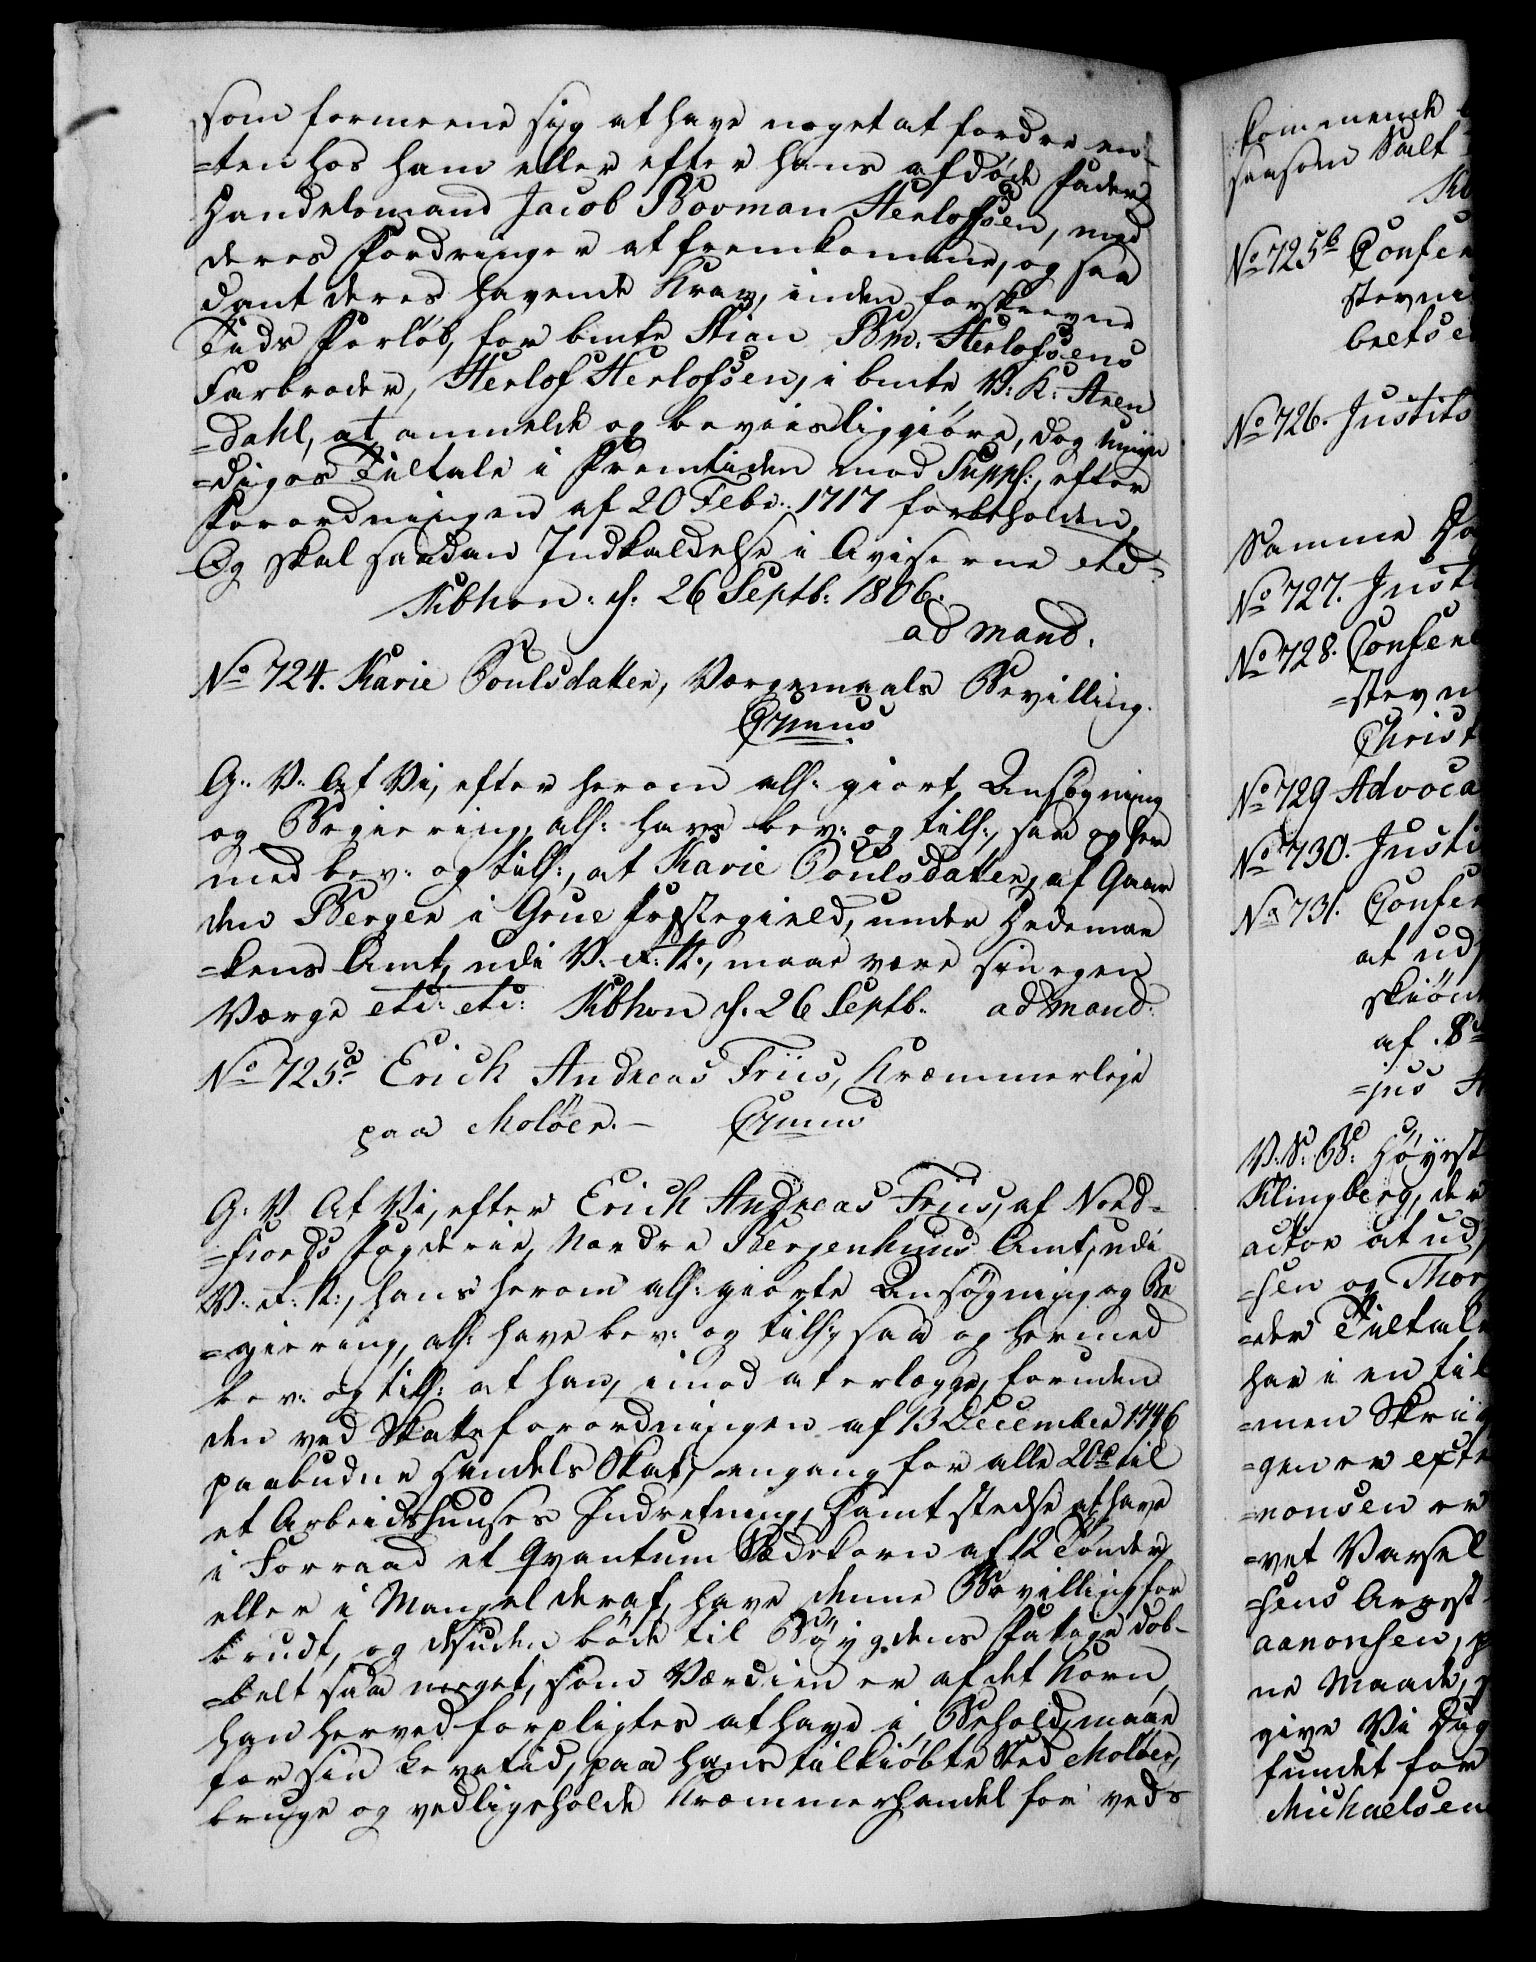 som formeene sig at have noget at fordre en-
=ten hos ham eller efter hans afdöde Fader
Handelsmand Jacob Bovman Herlofsen, med
deres Fordringer at fremkomme, og saa
dant deres havende Krav, inden forskrevne
Tids Forløb, for bmte Stian Bm. Herlofsens
Farbroder, Herlof Herlofsen, i bmte V: K: Aren
=dahl, at anmelde og beviisliggiöre, dog Umyn
=diges Tiltale i Fremtiden mod Suppl:, efter
Forordningen af 20 Febr: 1717 forbeholden,
Og skal saadan Indkaldelse i Aviserne etc-
Kbhvn: d: 26 Septb: 1806.
ad mand.
No 724. Karie Poulsdatter, Værgemaals Bevilling.
Qrauus
G. V. At Vi, efter herom all: giort Ansøgning
og Begiering, all: have bev: og till:, saa og her
med bev: og till:, at Karie Poulsdatter, af Gaar
den Berger i Grue Præstegield, under Hedemar
=kens Amt, udi V. R: N., maae være sin egen
Værge etc: etc: Kbhvn d. 26 Septb. ad mand:
No 725a Erich Andreas Friis, Kræmmerleje
paa Molöen. - Qrauus
G: V. At Vi, efter Erich Andreas Friis, af Nord-
=fiords Fogderie, Nordre Bergenhuus Amt, udi
V: R: N:, hans herom all: giorte Ansøgning og Be
=giering, all: have bev: og till:, saa og hermed
bev: og till: at han, imod at erlægge, foruden
den ved Skatteforordningen af 13 December 1746
paabudne Handels Skat, engang for alle 20 rd til
et Arbeidshuuses Indretning, samt stedse at have
i Forraad et Qvantum Sædekorn af 12 Tönder,
eller i Mangel deraf, have denne Bevilling for
brudt, og desuden böde til Böygdens Fattige dob-
=belt saa meget, som Værdien er af det Korn,
han herved forpligtes at have i Behold, maae
for sin Levetid, paa hans tilkiöbte Sted Molöen,
bruge og vedligeholde Kræmmerhandel for veds
kommende
saasom Salt
No 725b Confer
stevni
beetse
No 726. Justits
Samme Da
No 727. Justi
No 728. Confere
=stevn
Christ
No 729 Advoca
No 730. Justi
No 731. Confer
at ud
skiön
af
=jus
V: S: B: Høyest
Klingberg, der
actor at ud
=sen og Thor
=der Tiltale
har i en til
=men Skri
=gen er efte
=nonsen er
=vet Varsel
=sens Arrest
aanonsen,
ne Maade,
give Vi Dig
fundet for
Michaelsen